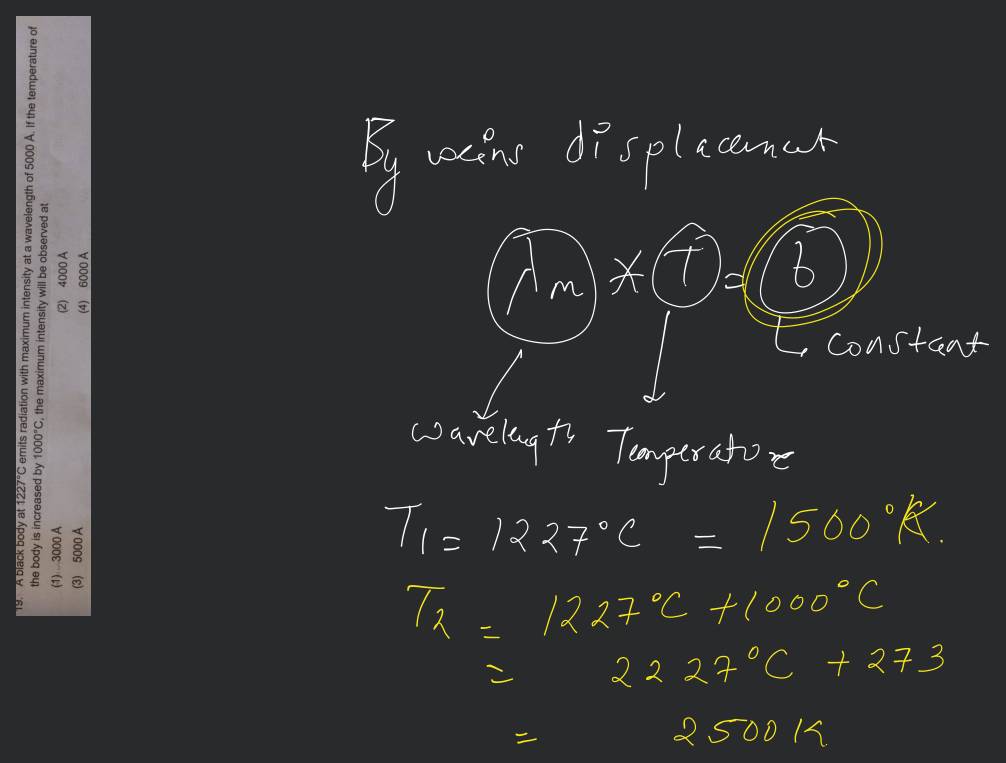 19. A black body at 1227°C emits radiation with maximum intensity at a wavelength of 5000 Å. If the temperature of
the body is increased by 1000°C, the maximum intensity will be observed at
(1) 3000 Å (2) 4000 Å
(3) 5000 Å (4) 6000 Å
By weins displacement
λm * T = b
constant
wavelength Temperature
T1 = 1227°C = 1500°K.
T2 = 1227°C + 1000°C
= 2227°C + 273
= 2500K